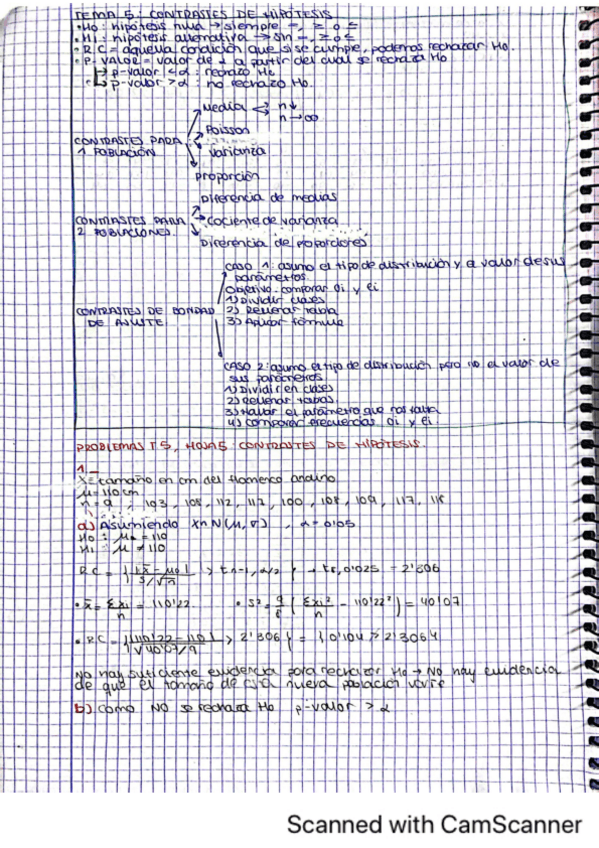 TEMA 5: CONTRASTES DE HIPÓTESIS
• H0: hipótesis nula → siempre =, ≥ o ≤
• H1: hipótesis alternativa → sin =, ≥ o ≤
• RC = aquella condición que si se cumple, podemos rechazar H0.
• P-valor = valor de α a partir del cual se rechaza H0
↳ p-valor < α : rechazo H0
↳ p-valor > α : no rechazo H0.
CONTRASTES PARA 1 POBLACIÓN
Media
n↓
n→∞
Poisson
Varianza
Proporción
CONTRASTES PARA 2 POBLACIONES.
Diferencia de medias
Cociente de varianza
Diferencia de proporciones
CONTRASTES DE BONDAD DE AJUSTE
CASO 1: asumo el tipo de distribución y el valor de sus
parámetros.
Objetivo: comparar Oi y ei
1) Dividir clases
2) Rellenar tabla
3) Aplicar fórmula
CASO 2: asumo el tipo de distribución pero no el valor de
sus parámetros
1) Dividir en clases
2) Rellenar tabas.
3) Hallar el parámetro que nos falta
4) comparar frecuencias Oi y ei.
PROBLEMAS T5, HOJA5: CONTRASTES DE HIPÓTESIS.
1.-
X = tamaño en cm del flamenco andino
μ = 110 cm
n = 9, 103, 108, 112, 112, 100, 108, 109, 117,
a) Asumiendo X∩N(μ, σ), α = 0'05
H0 : μ = 110
H1 : μ ≠ 110
RC = { |x̄ - μ0| / s/√n > t n-1, α/2 } → t8, 0'025 = 2'306
• x̄ = Σxi / n = 110'22 • S² = 9/8 ( Σxi² / n - 110'22² ) = 40'07
• RC = { |110'22 - 110| / √40'07/9 > 2'306 } = { 0'104 > 2'306 }
No hay suficiente evidencia para rechazar H0 → No hay evidencia
de que el tamaño de esta nueva población varíe
b) como NO se rechaza H0 p-valor > α
Scanned with CamScanner